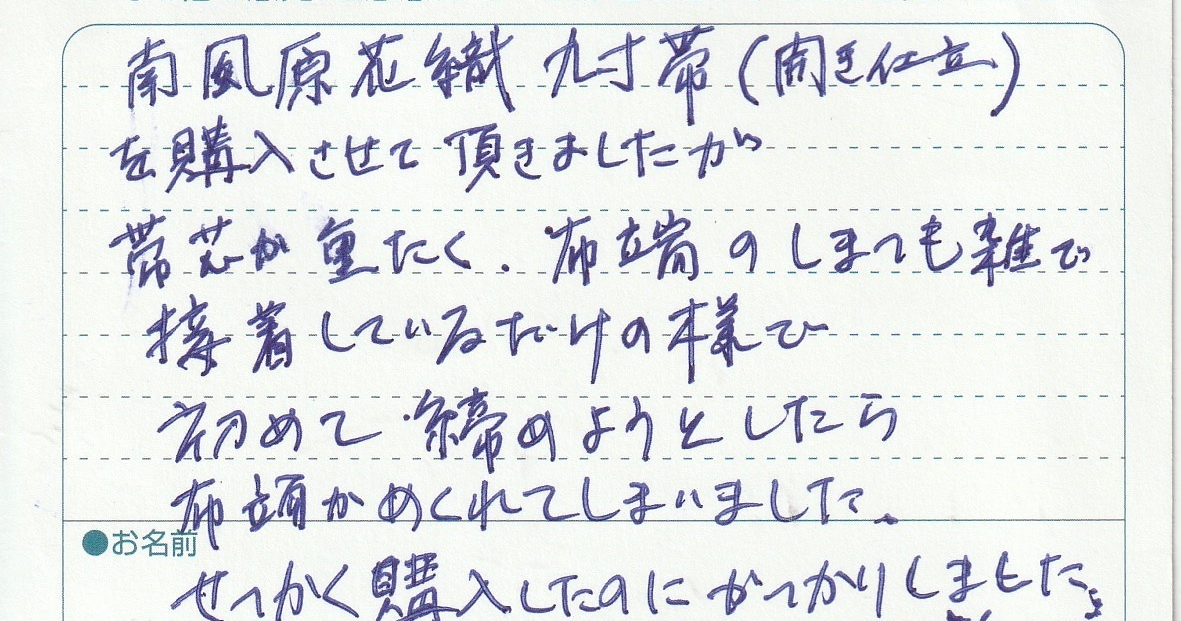 南風原花織 九寸帯(開き仕立)
を購入させて頂きましたが
帯芯が重たく、布端のしまつも雑で
接着しているだけの様で
初めて締めようとしたら
布端がめくれてしまいました。
●お名前
せっかく購入したのにがっかりしました。